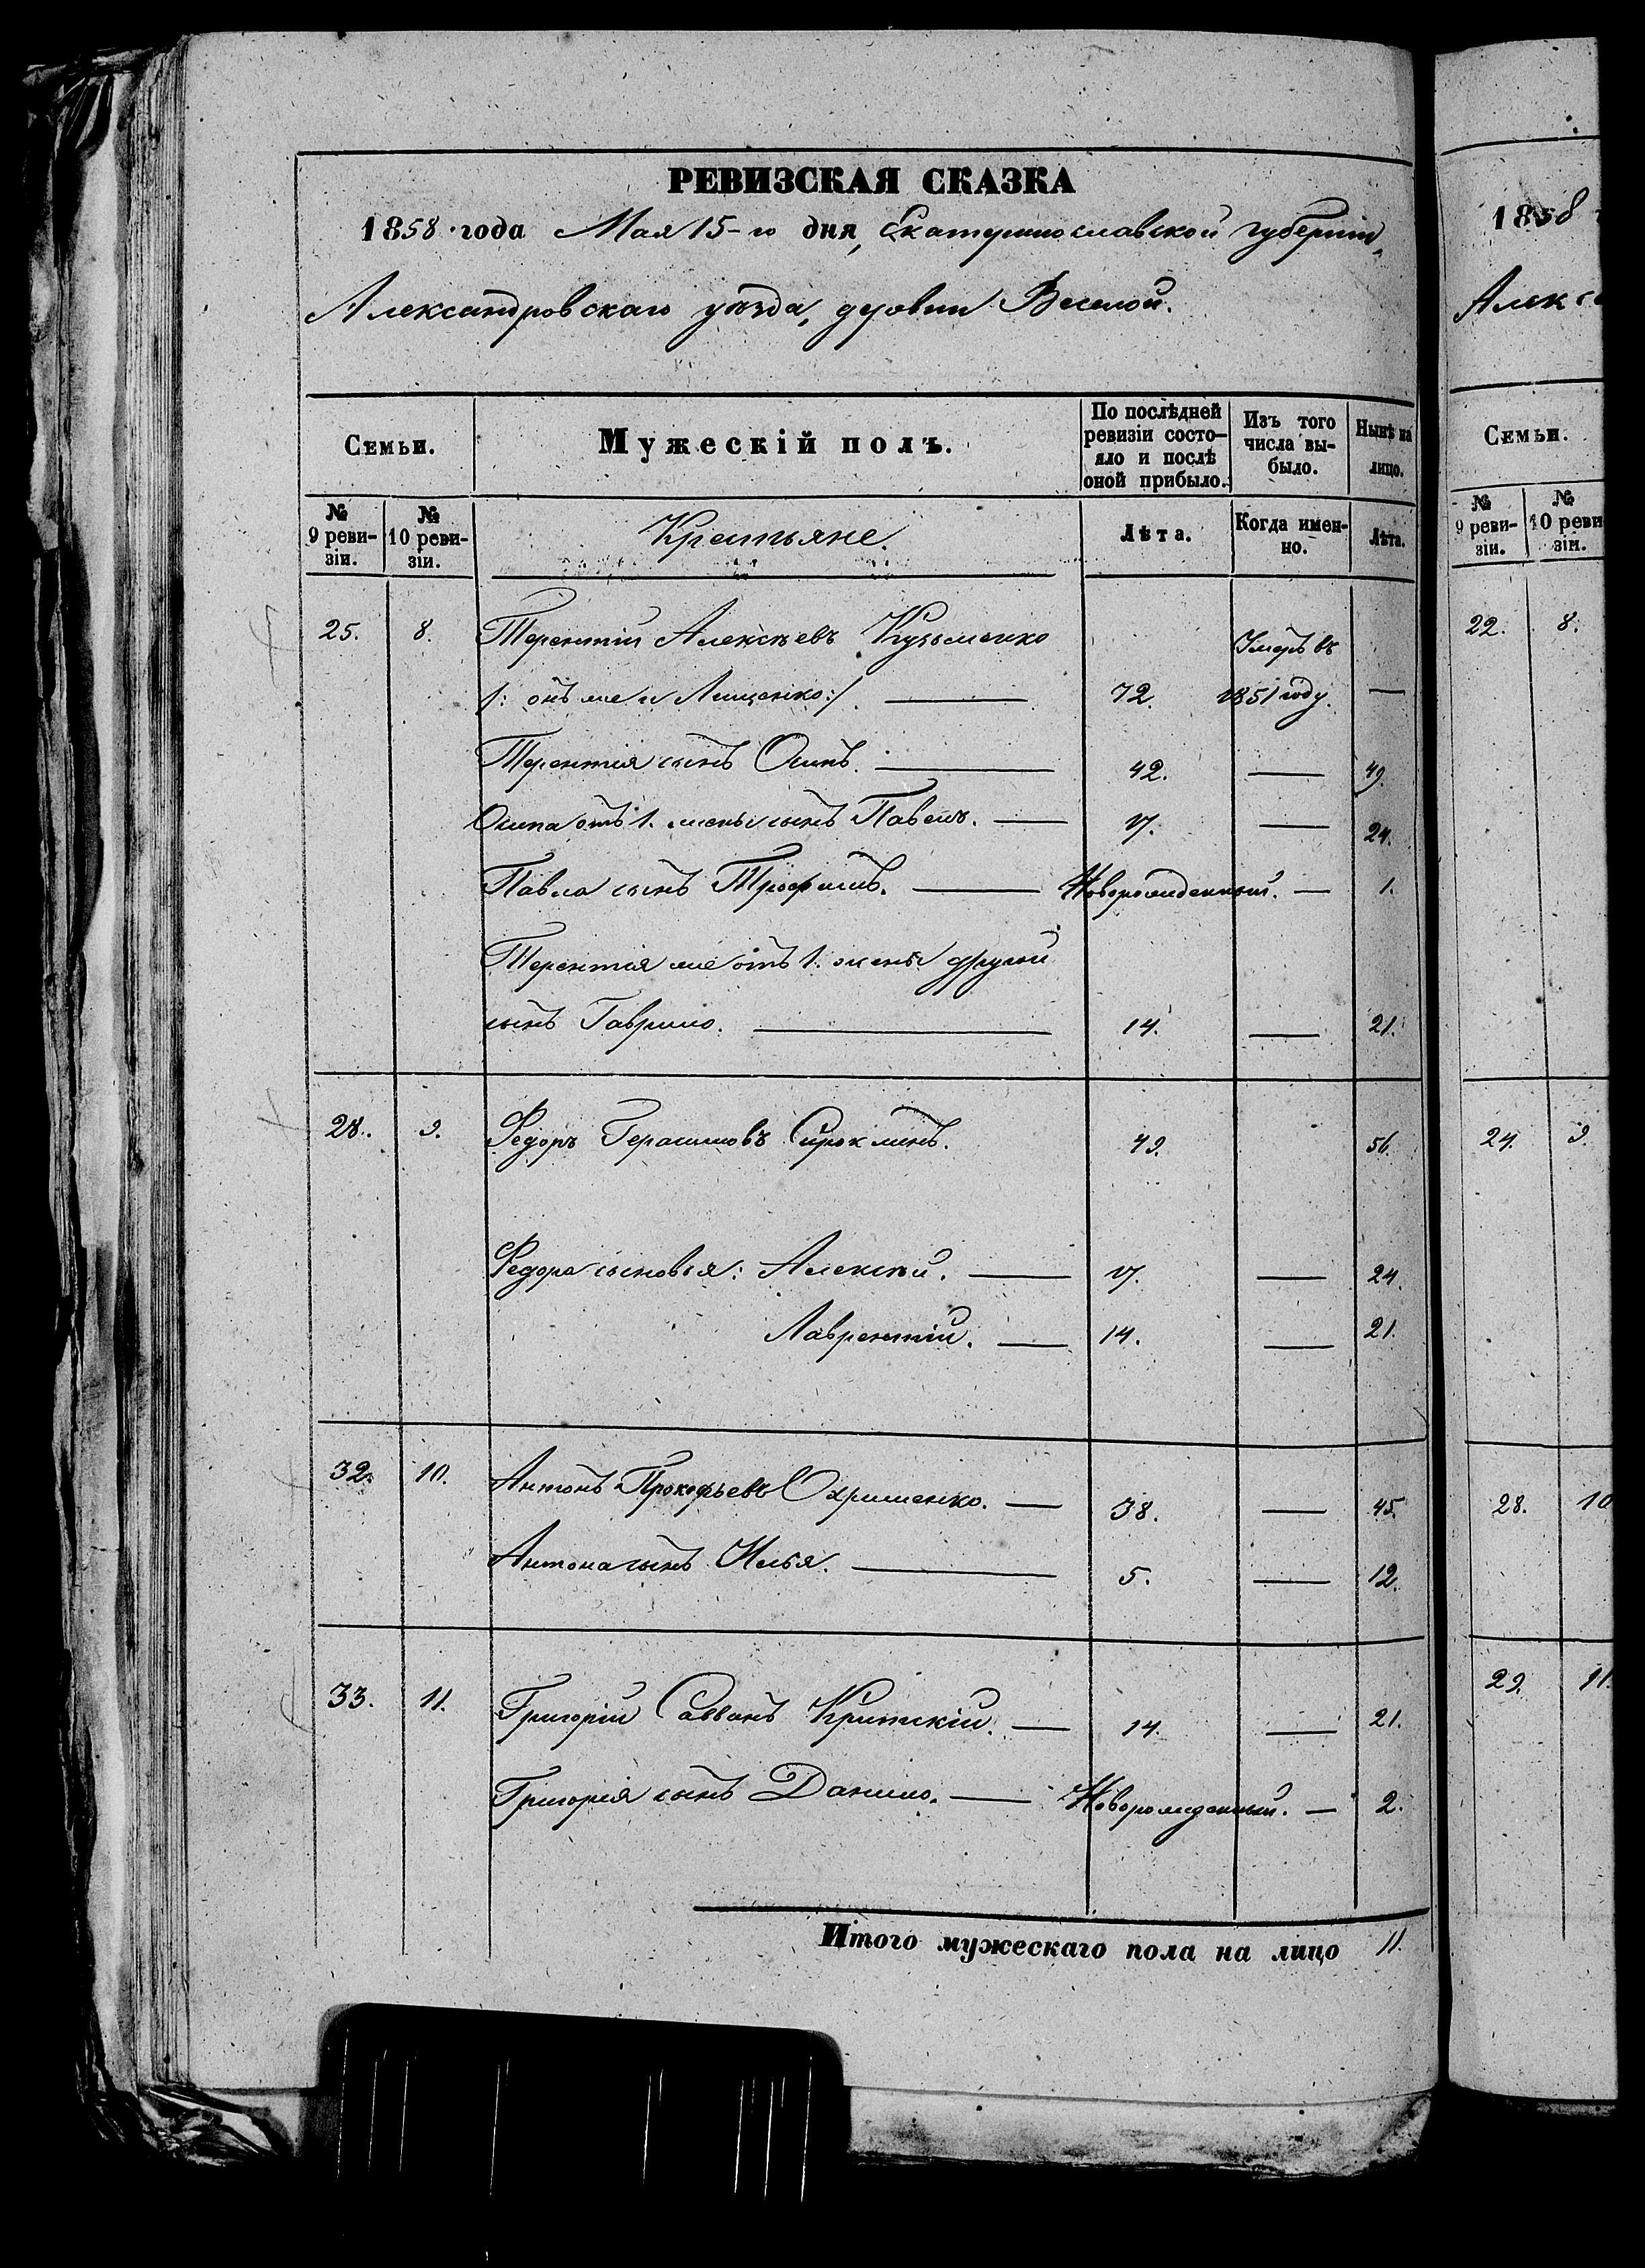 РЕВИЗСКАЯ СКАЗКА
1858 года Мая 15-го дня, Екатеринославской губерніи,
Александровскаго уѣзда, деревни Веселой.
Семьи.
Мужескій полъ.
По послѣдней ревизіи состо-
яло и послѣ оной прибыло.
Изъ того числа вы-
было.
Нынѣ на лицо.
№ 9 реви-
зіи.
№ 10 реви-
зіи.
Крестьяне.
Лѣта.
Когда имен-
но.
Лѣта.
25. 8. Терентій Алексѣевъ Кузьменко Умеръ въ
/: онъ же и Лищенко :/ — 72. 1851 году. —
Терентія сынъ Осипъ. — 42. — 49.
Осипа отъ 1. жены сынъ Павелъ. — 17. — 24.
Павла сынъ Трофимъ. — Новорожденный. — 1.
Терентія же отъ 1. жены другой
сынъ Гаврило. — 14. — 21.
28. 9. Федоръ Герасимовъ 49. 56.
Федора сыновья: Алексѣй. — 17. — 24.
Лаврентій. — 14. — 21.
32. 10. Антонъ Прокофьевъ Охрименко. — 38. — 45.
Антона сынъ Илья. — 5. — 12.
33. 11. Григорій Саввинъ Кримскій. — 14. — 21.
Григорія сынъ Данило. — Новорожденный. — 2.
Итого мужескаго пола на лицо 11.
1858
Алекс
Семьи.
№ 9 реви-
зіи.
№ 10 реви
зіи.
22. 8.
24. 9.
28. 10
29. 11.